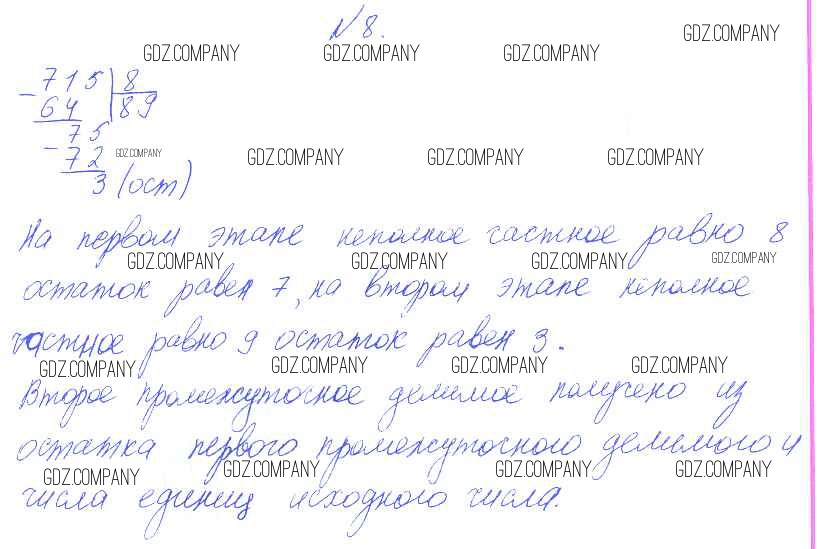 № 8.
GDZ.COMPANY GDZ.COMPANY GDZ.COMPANY GDZ.COMPANY
- 715 | 8
64 | 89
75
- 72 GDZ.COMPANY GDZ.COMPANY GDZ.COMPANY GDZ.COMPANY
3 (ост)
На первом этапе неполное частное равно 8
GDZ.COMPANY GDZ.COMPANY GDZ.COMPANY GDZ.COMPANY
остаток равен 7, на втором этапе неполное
частное равно 9 остаток равен 3.
GDZ.COMPANY GDZ.COMPANY GDZ.COMPANY GDZ.COMPANY
Второе промежуточное делимое получено из
остатка первого промежуточного делимого и
GDZ.COMPANY GDZ.COMPANY GDZ.COMPANY GDZ.COMPANY
числа единиц исходного числа.